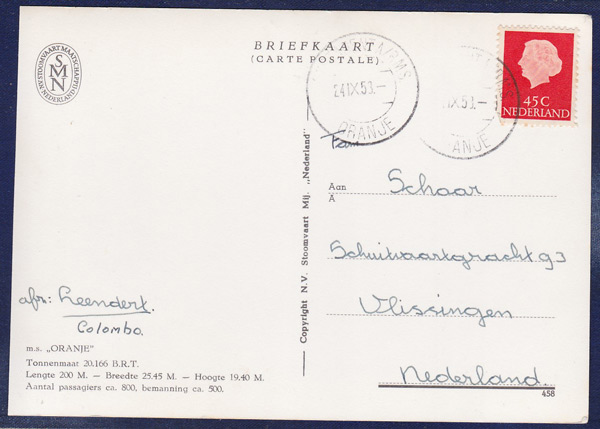 BRIEFKAART
(CARTE POSTALE)
N.V. STOOMVAART MAATSCHAPPIJ
NEDERLAND
SMN
24 IX 53.-
ORANJE
IX 53.-
ANJE
45C
NEDERLAND
Fam
Aan
A
Schaar
Schuitvaartgracht 93
Vlissingen
Nederland.
458
Copyright N.V. Stoomvaart Mij. „Nederland"
afz: Leendert.
Colombo.
m.s. „ORANJE"
Tonnenmaat 20.166 B.R.T.
Lengte 200 M. — Breedte 25.45 M. — Hoogte 19.40 M.
Aantal passagiers ca. 800, bemanning ca. 500.